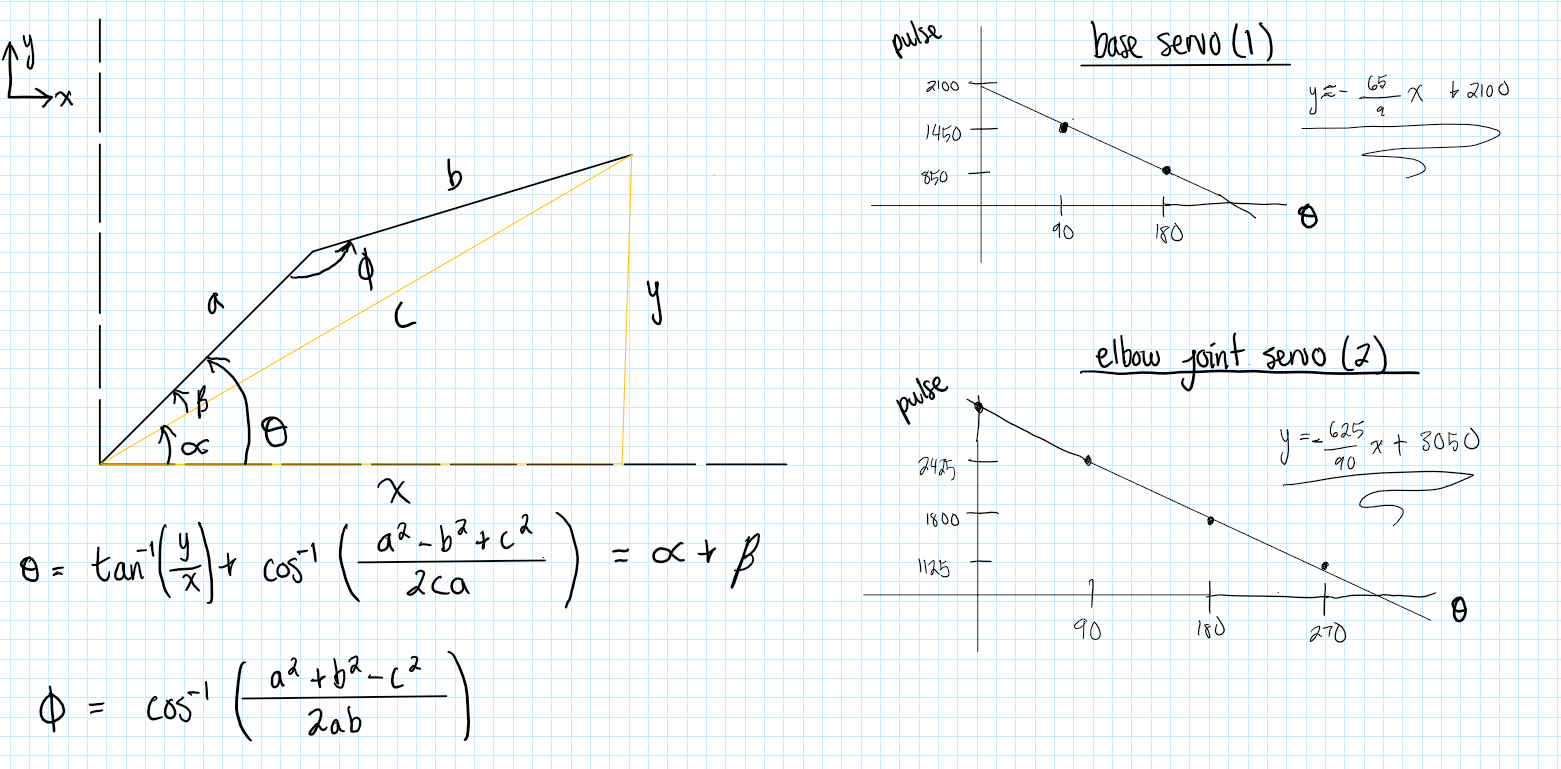 y
x
a
b
c
y
ϕ
β
α
θ
x
θ = tan⁻¹(y/x) + cos⁻¹((a² - b² + c²)/2ca) = α + β
ϕ = cos⁻¹((a² + b² - c²)/2ab)
base servo (1)
pulse
2100
1450
850
90
180
θ
y ≈ - 65/9 x + 2100
elbow joint servo (2)
pulse
2425
1800
1125
90
180
270
θ
y = - 625/90 x + 3050